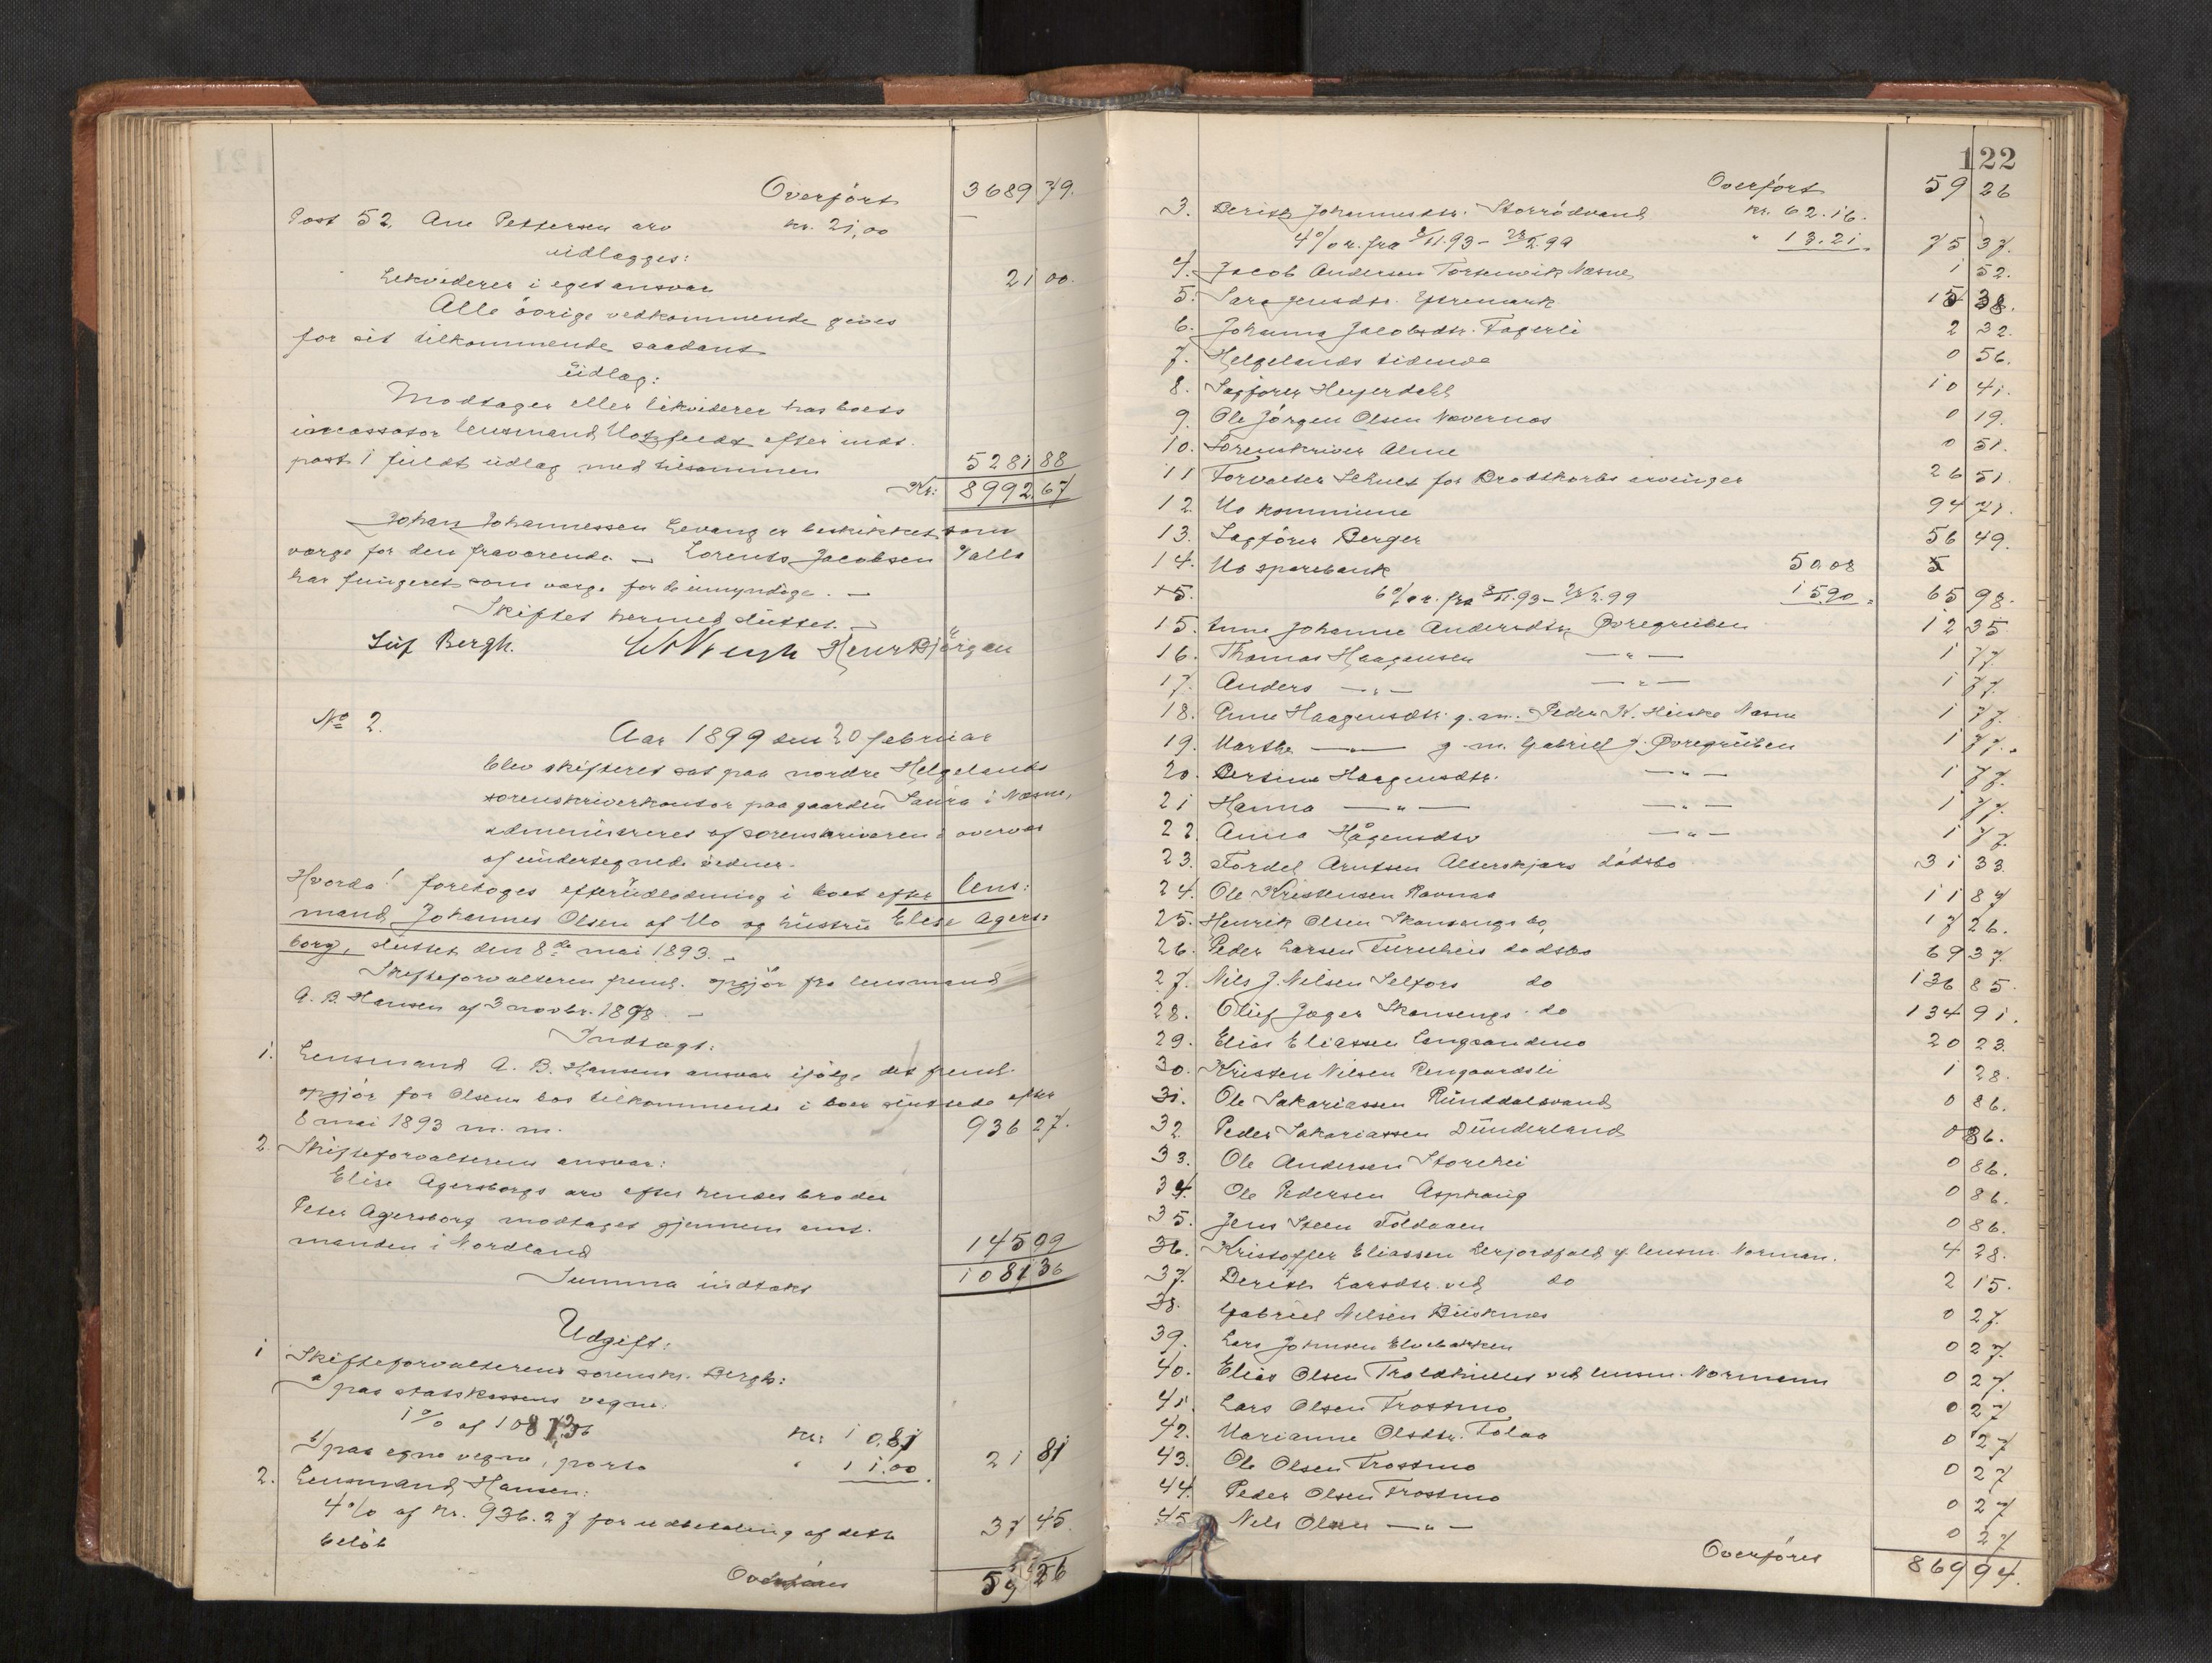 Overført 3689 79.
Post 52. Ane Pettersen arv kr. 21,00
udlægges:
Likviderer i eget ansvar 21 00.
Alle övrige vedkommende gives
for sit tilkommende saadant
Udlæg:
Modtager eller likviderer has boets
incassator lensmand efter indt.
post 1 fuldt udlæg med tilsammen 5281 88
Kr: 8992.67
Johan Johannessen Levang er beskikket som
værge for den fraværende. — Lorents Jacobsen Valla
har fungeret som værge for de umyndige. —
Skiftet hermed sluttet. —
Luf Bergh. Henr Björgan
No 2.
Aar 1899 den 20 februar
blev skifteret sat paa nordre Helgelands
sorenskriverkontor paa gaarden Saura i Nesne,
administreret af sorenskriveren i overvær
af undertegnede vidner.
Hvorda! foretoges efterudlodning i boet efter lens:
mand Johannes Olsen af Mo og hustru Elise Agers:
borg, sluttet den 8de mai 1893. —
Skifteforvalteren freml. opgjör fra lensmand
A. B. Hansen af 3 novbr. 1898. —
Indtægt:
1. Lensmand A. B. Hansens ansvar ifölge det freml.
opgjör for Olsens bos tilkommende i boer sluttede efter
8 mai 1893 m. m. 936 27.
2. Skifteforvalterens ansvar:
Elise Agersborgs arv efter hendes broder
Peter Agersborg modtaget gjennem amt.
manden i Nordland 145 09
Summa indtækt 1081 36
Udgift:
1 Skifteforvalteren sorenskr. Bergh:
a/ paa statskassens vegne:
1% af 1081,36 kr: 10.81
b/ paa egne vegne, porto " 11.00. 21 81
2. Lensmand Hansen:
4% af kr. 936.27 for udbetaling af dette
belöb 37 45.
Overføres 59 26
122
Overført 59 26
3. Berith Johannesdtr. Storrödvand kr. 62.16.
4% r. fra 8/11.93 – 28/2.99 " 13.21. 75 37.
4. Jacob Andersen Torsenvik Nesne 1 52.
5. Sara Jensdtr. Yttremark 15 38.
6. Johanna Jacobsdtr. Fagerli 2 32.
7. Helgelands tidende 0 56.
8. Sagförer Heyerdahl 10 41.
9. Ole Jörgen Olsen Nævernes 0 19.
10. Sorenskriver Alme 0 51.
11 Forvalter Schult for Brodtkorbs arvinger 26 51.
12. Mo kommune 94 21.
13. Sagförer Berger 56 49.
14. Mo sparebank 50.08 5
+5. 6% r. fra 8/11.93 – 28/2.99 15.90. 65 98.
15. Anne Johanna Andersdtr. Övregruben 12 35
16. Thomas Haagensen —"— 1 77.
17. Anders —"— —"— 1 77.
18. Anne Haagensdtr. g. m. Peder K. Hinske Nesne 1 77
19. Marthe —"— g. m. Gabriel J. Övregruben 1 77.
20. Bersine Haagensdtr. —"— 1 77.
21 Hanna —"— —"— 1 77.
22. Anna Hågensdtr —"— 1 77.
23. Fordel Arntsen Alterskjærs dödsbo 31 33.
24. Ole Kristensen Ravnaa 11 87
25. Henrik Olsen Skonsengs bo, 17 26.
26. Peder Larsen Furuheis dödsbo 69 37.
27. Nils J. Nilsen Selfors do 136 85.
28. Oluf Jæger Skonsengs do 134 91.
29. Elias Eliassen Langsandmo 20 23.
30. Kristen Nilsen Rengaardsli 1 28.
31. Ole Sakariassen Runddalsvand 0 86.
32. Peder Sakariassen Dunderland 0 86.
33. Ole Andersen Storehei 0 86.
34. Ole Pedersen Asphaug 0 86.
35. Jens Steen Toldaaen 0 86.
36. Kristoffer Eliassen Lerjordfald v/ lensm. Norman. 4 28.
37. Berith Larsdtr. ved do 2 15.
38. Gabriel Nilsen Büsknes 0 27.
39. Lars Johnsen Elvebakken 0 27.
40. Elias Olsen Troldhullet ved lensm. Normann 0 27.
41. Lars Olsen Frostmo 0 27
42. Marianne Olsdtr. Tolaa 0 27
43. Ole Olsen Frostmo 0 27
44. Peder Olsen Frostmo 0 27
45. Nils Olsen —"— 0 27
Overføres 869 94.